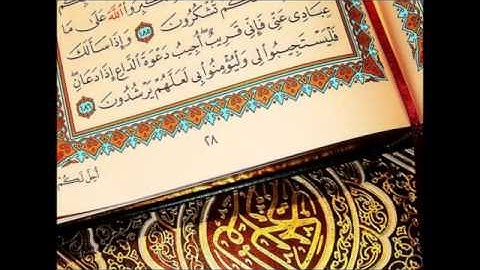 كَبِّرُوا اللَّهَ عَلَىٰ مَا
كُمْ تَشْكُرُونَ ١٨٥ وَإِذَا سَأَلَكَ
عِبَادِي عَنِّي فَإِنِّي قَرِيبٌ أُجِيبُ دَعْوَةَ الدَّاعِ إِذَا دَعَانِ
فَلْيَسْتَجِيبُوا لِي وَلْيُؤْمِنُوا بِي لَعَلَّهُمْ يَرْشُدُونَ ١٨٦
٢٨
أُحِلَّ لَكُمْ